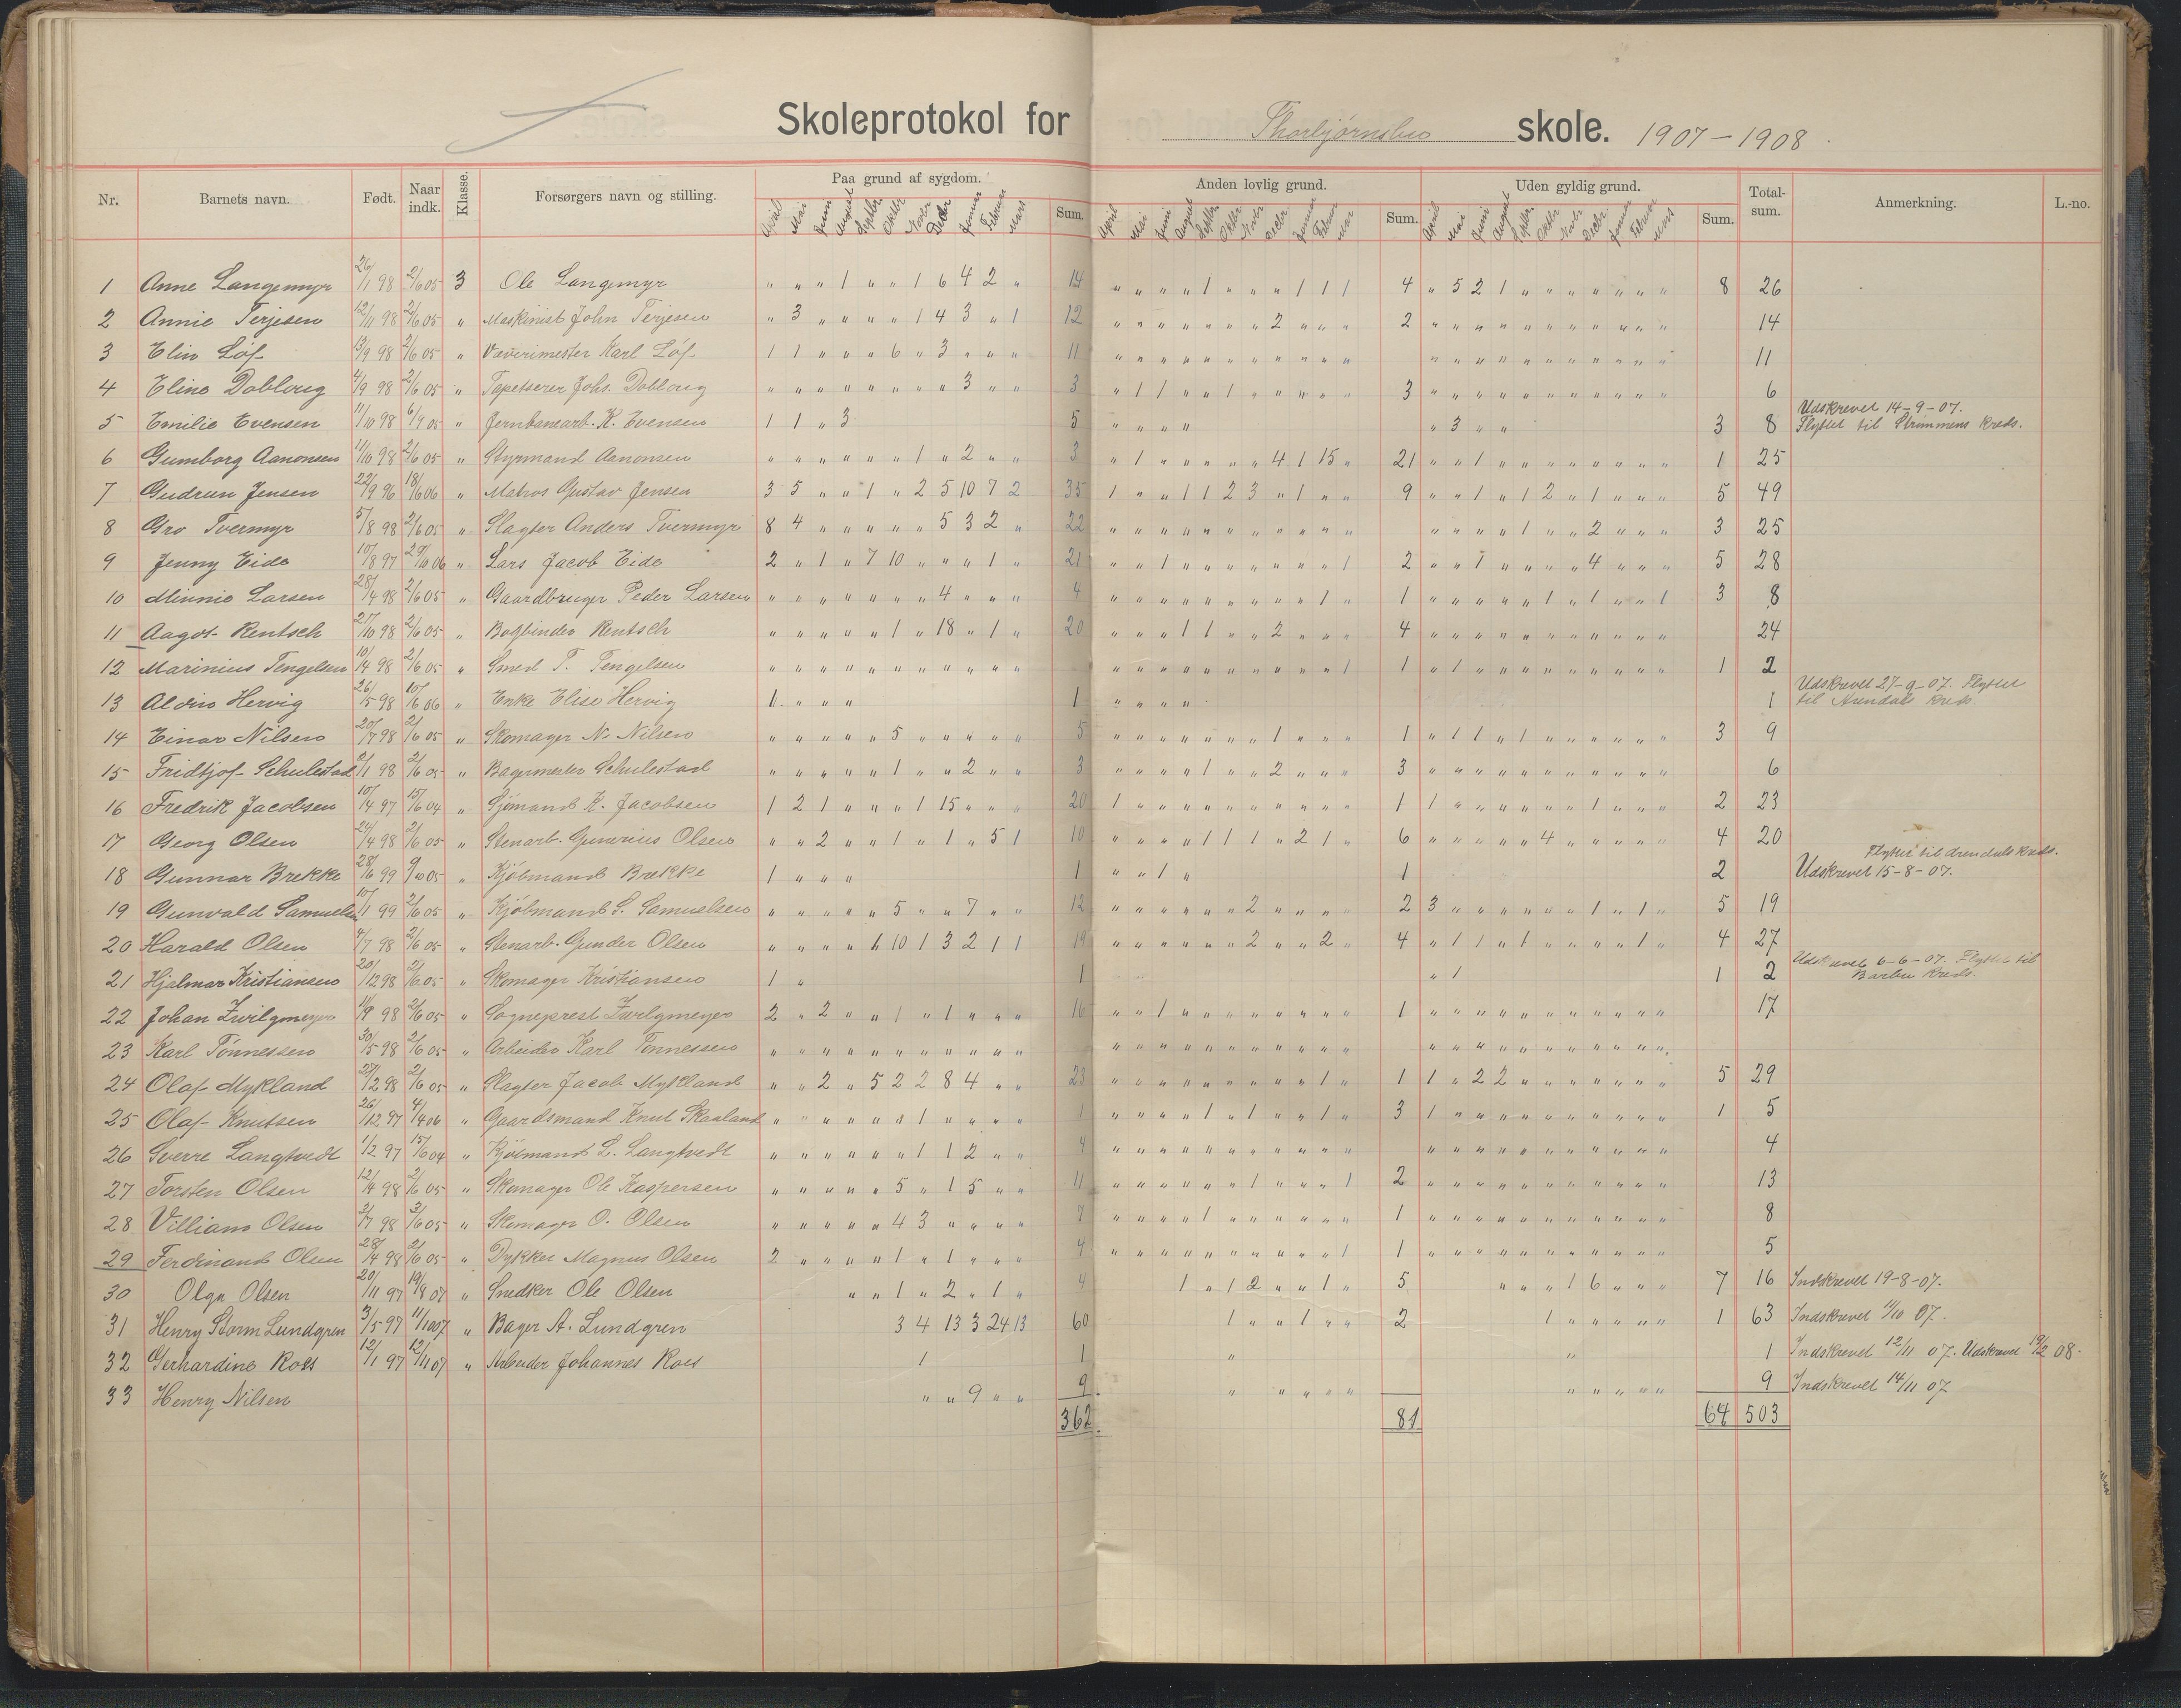 Skoleprotokol for Thorbjørnsbu skole. 1907-1908
Nr. Barnets navn. Født. Naar indk. Klasse. Forsørgers navn og stilling. Paa grund af sygdom. Sum. Anden lovlig grund. Sum. Uden gyldig grund. Sum. Total-sum. Anmerkning. L.-no.
April Mai Juni August Septbr Oktbr Novbr Decbr Januar Februar Mars
1 Anne Langemyr 26/1 98 2/6 05 3 Ole Langemyr " " " 1 " " 1 6 4 2 " 14 " " " " 1 " " " 1 1 1 4 " 5 2 1 " " " " " " " 8 26
2 Annie Terjesen 12/11 98 2/6 05 " Maskinist John Terjesen " 3 " " " " 1 4 3 " 1 12 " " " " " " " 2 " " " 2 " " " " " " " " " " " 14
3 Elin Löf 13/9 98 2/6 05 " Væverimester Karl Löf 1 1 " " " 6 " 3 " " " 11 " " " " " " " " " " " " " " " " " " " " " " 11
4 Eline Dobloug 4/9 98 2/6 05 " Tapetserer Johs. Dobloug " " " " " " " " 3 " " 3 " 1 1 " 1 " " " " " " 3 " " " " " " " " " " " 6
5 Emilie Evensen 11/10 98 6/9 05 " Jernbanearb. K. Evensen 1 1 " 3 5 " " " " " 3 " " 3 8 Udskrevet 14-9-07.
Flyttet til Strømmens Kreds.
6 Gumborg Aanonsen 11/10 98 2/6 05 " Styrmand Aanonsen " " " " " " 1 " 2 " " 3 " 1 " " " " " 4 1 15 " 21 " " 1 " " " " " " " " 1 25
7 Gudrun Jensen 22/9 96 18/6 06 " Matros Gustav Jensen 3 5 " " 1 " 2 5 10 7 2 35 1 " " 1 1 2 3 " 1 " " 9 " " 1 " 1 2 " 1 " " " 5 49
8 Gro Tvermyr 5/8 98 2/6 05 " Slagter Anders Tvermyr 8 4 " " " " " 5 3 2 " 22 " " " " " " " " " " " " " " " 1 " " 2 " " " 3 25
9 Jenny Eide 10/8 97 29/10 06 " Lars Jacob Eide 2 " 1 " 7 10 " " " 1 " 21 " " 1 " " " " " " " 1 2 " " 1 " " " " 4 " " " 5 28
10 Minnie Larsen 28/4 98 2/6 05 " Gaardbruger Peder Larsen " " " " " " " 4 " " " 4 " " " " " " " " " 1 " 1 " " " " " 1 " 1 " " 1 3 8
11 Aagot Rentsch 27/10 98 2/6 05 " Bogbinder Rentsch " " " " " 1 " 18 " 1 " 20 " " " 1 1 " " 2 " " " 4 " " " " " " " " " " " 24
12 Marinius Tengelsen 10/4 98 2/6 05 " Smed T. Tengelsen " " " " " " " " " " " " " " " " " " " " " 1 1 " 1 " " " " " " " " " 1 2
13 Alvin Hervig 26/5 98 10/6 06 " Enke Elise Hervig 1 " " " 1 " " " " 1 Udskrevet 27-9-07. Flyttet
til Arendals Kreds.
14 Einar Nilsen 20/7 98 2/6 05 " Skomager N. Nilsen " " " " " 5 " " " " " 5 " " " " " " " 1 " " " 1 " 1 1 " 1 " " " " " " 3 9
15 Fridtjof Schulestad 2/1 98 2/6 05 " Bagermester Schulestad " " " " " 1 " " 2 " " 3 " " " " 1 " " 2 " " " 3 " " " " " " " " " " " 6
16 Fredrik Jacobsen 10/4 97 15/6 04 " Sjømand K. Jacobsen 1 2 1 " " " 1 15 " " " 20 1 " " " " " " " " " " 1 1 " " " " " " 1 " " " 2 23
17 Georg Olsen 24/4 98 2/6 05 " Stenarb. Gunerius Olsen " " 2 " " 1 " 1 " 5 1 10 " " " " 1 1 1 " 2 1 " 6 " " " " " 4 " " " " " 4 20
18 Gunnar Brekke 28/6 99 9/10 05 " Kjøbmand Brekke 1 " " " 1 " " 1 " 1 2 Flyttet til Arendals Kreds.
Udskrevet 15-8-07.
19 Gunvald Samuelsen 10/1 99 2/6 05 " Kjøbmand S. Samuelsen " " " " " 5 " " 7 " " 12 " " " " " " 2 " " " " 2 3 " " " " " " 1 " 1 " 5 19
20 Harald Olsen 4/7 98 2/6 05 " Stenarb. Gunder Olsen " " " " 1 10 1 3 2 1 1 19 " " " " " " 2 " " 2 " 4 " 1 1 " 1 " " " " 1 " 4 27
21 Hjalmar Kristiansen 20/12 98 2/6 05 " Skomager Kristiansen 1 " 1 " 1 1 2 Udskrevet 6-6-07. Flyttet til
Barbu Kreds.
22 Johan Zwilgmeyer 11/8 98 2/6 05 " Sogneprest Zwilgmeyer 2 " 2 " " 1 " 1 " " " 16 " " 1 " " " " " " " " 1 " " " " " " " " " " " 17
23 Karl Tönnessen 30/5 98 2/6 05 " Arbeider Karl Tönnessen " " " " " " " " " " " " " " " " " " " " " " " " " " " " " " " " "
24 Olaf Mykland 27/2 98 2/6 05 " Slagter Jacob Mykland " " 2 " 5 2 2 8 4 " " 23 " " " " " " " " " 1 " 1 1 " 2 2 " " " " " " " 5 29
25 Olaf Knutsen 26/12 97 4/4 06 " Gaardsmand Knut Skaaland " " " " " " 1 " " " " 1 " " " " 1 " 1 " " 1 " 3 1 " " " " " " " " " " 1 5
26 Sverre Langtvedt 1/2 97 15/6 04 " Kjøbmand L. Langtvedt " " " " " " 1 1 2 " " 4 " " " " " " " " " " " " " " " " " " " " " " 4
27 Torsten Olsen 12/4 98 2/6 05 " Skomager Ole Kaspersen " " " " " 5 " 1 5 " " 11 " " " " " " 1 " " " 1 2 " " " " " " " " " " " 13
28 Villiam Olsen 3/7 98 2/6 05 " Skomager O. Olsen " " " " " 4 3 " " " " 7 " " " " 1 " " " " " " 1 " " " " " " " " " " " 8
29 Ferdinand Olsen 28/4 98 2/6 05 " Dykker Magnus Olsen 2 " " " " 1 " 1 " " " 4 " " " " " " " " " " 1 1 " " " " " " " " " " " 5
30 Olga Olsen 20/11 97 19/8 07 " Snedker Ole Olsen " " 1 " 2 " 1 " 4 1 " 1 2 " " 1 " 5 " " " 1 6 " " " 7 16 Indskrevet 19-8-07.
31 Henry Storm Lundgren 3/5 97 11/10 07 " Bager A. Lundgren 3 4 13 3 24 13 60 1 " " 1 " " 2 1 " " " " " 1 63 Indskrevet 11/10 07.
32 Gerhardine Roes 12/1 97 12/11 07 " Arbeider Johannes Roes 1 1 " " 1 Indskrevet 12/11 07. Udskrevet 19/2 08.
33 Henry Nilsen " " 9 " " 9 " " " " " " " " " " 9 Indskrevet 14/11 07
362 81 64 503